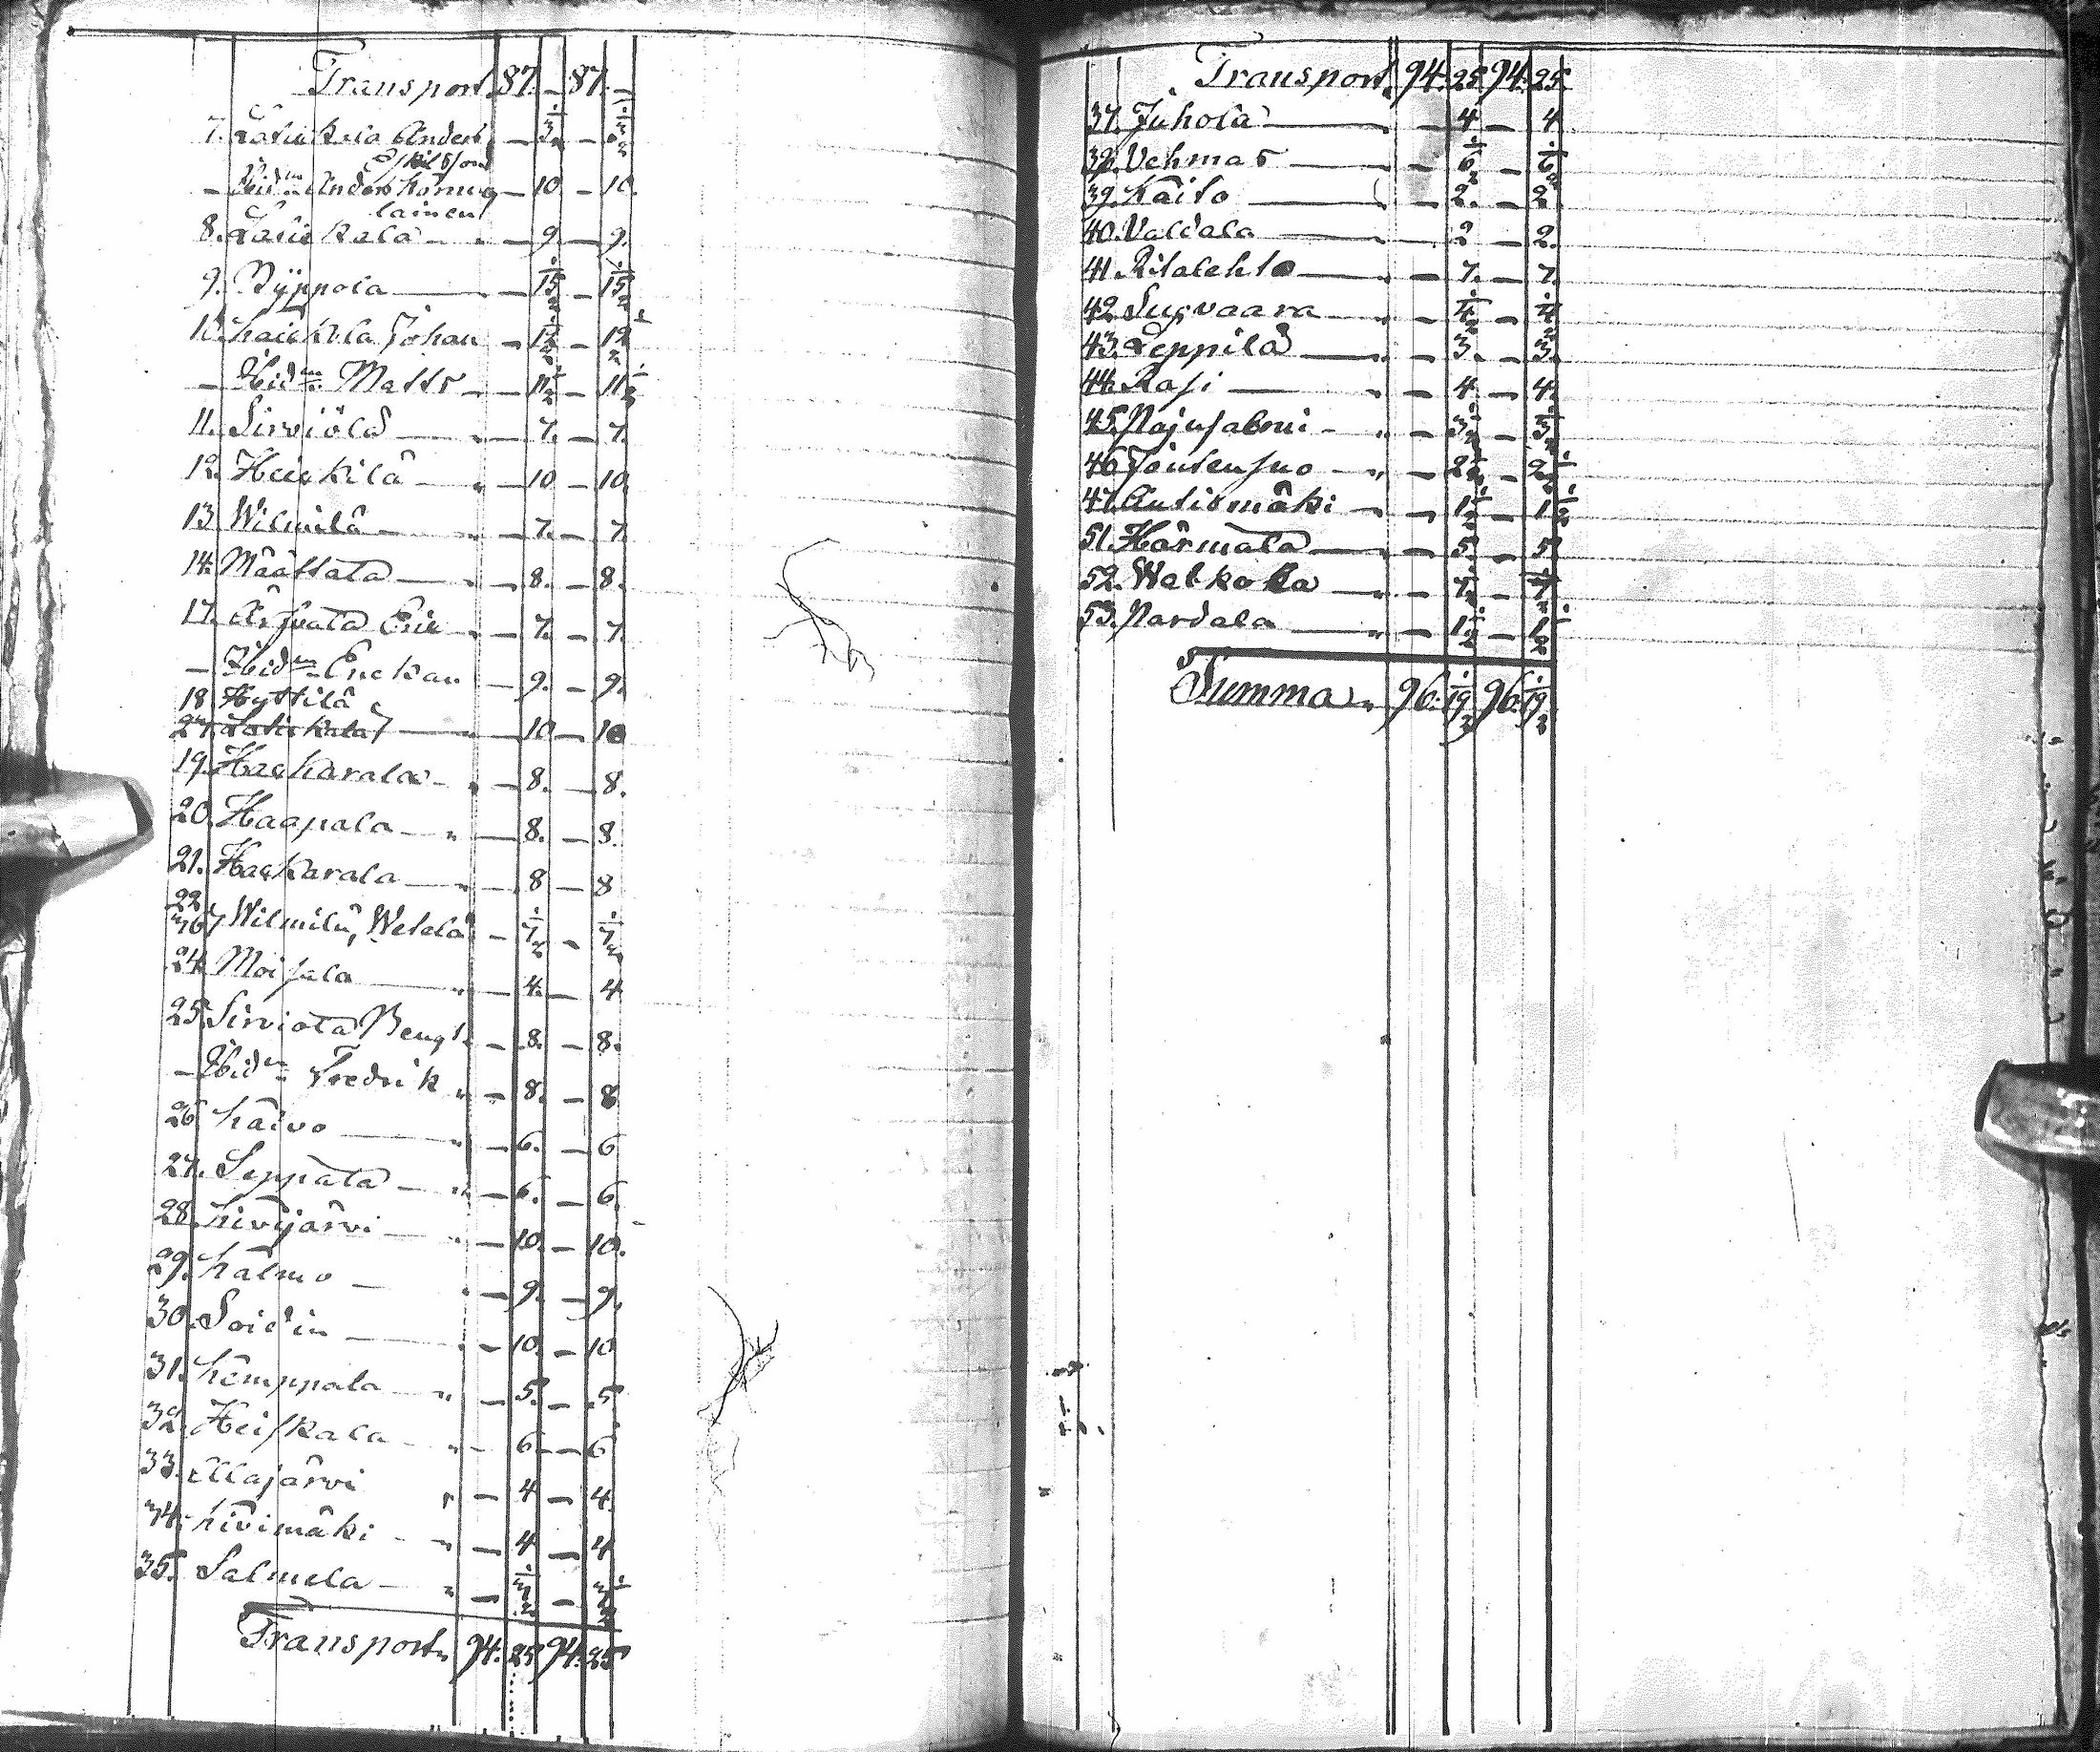 Transport 87. — 87. —
7. Anders — 3½ — 3½
Eskilsson
— Ibidm Anders — 10. — 10.
lainen
8. — 9. — 9.
9. Pyppola — 15½ — 15½
10. Johan — 12½ — 12½
— Ibidm Matts — 11½ — 11½
11. Sirviölä — 7. — 7.
12. Heickilä — 10 — 10.
13. Wilmilä — 7. — 7.
14. Määttälä — 8. — 8.
17. Eric — 7. — 7.
— Ibidm Enckan — 9. — 9.
18. Hyttilä
— 10 — 10
19. Hackarala — 8. — 8.
20. Haapala — 8. — 8.
21. Hackarala — 8 — 8
22.
36. Wilmilä, Wetelä — 7½ — 7½
24. Moisala — 4. — 4
25. Sirviölä Bengt — 8. — 8.
— Ibidm Fredrik — 8. — 8
26. Kaivo — 6. — 6
27. Seppälä — 6. — 6.
28. Kivijärvi — 10. — 10.
29. Kalmo — 9. — 9.
30. Soidin — 10. — 10
31. Kemppala — 5. — 5.
32. Heiskala — 6 — 6
33. Ellajärvi — 4 — 4.
34. Kivimäki — 4 — 4
35. Salmela — 3½ — 3½
Transport 94. 25 94. 25
Transport 94. 25. 94. 25.
37. Juhola — 4 — 4
38. Vehmas — 6½ — 6½
39. Kaito — 2. — 2
40. Valdala — 2 — 2.
41. Ritalehto — 7. — 7.
42. Suovaara — 4½ — 4½
43. Leppilä — 3. — 3.
44. Rasi — 4 — 4.
45. Pajusalmi — 3½ — 3½
46. Joutensuo — 2½ — 2½
47. Autiomäki — 1½ — 1½
51. Härmälä — 5. — 5
52. Walkola — 7½ — 7½
53. Pardala — 1½ — 1½
Summa 96. 19½ 96. 19½